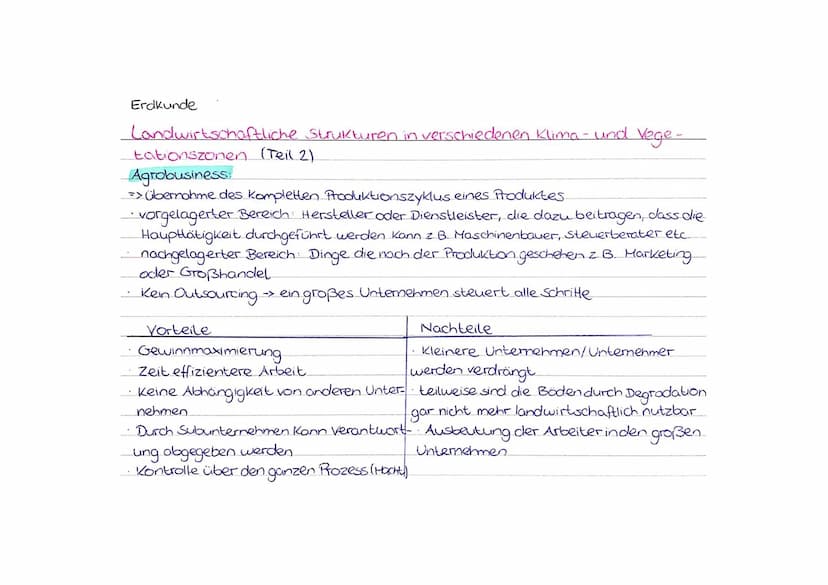 Erdkunde
Landwirtschaftliche Strukturen in verschiedenen Klima- und Vege-
tationszonen (Teil 2)
Agrobusiness:
=> Übernahme des kompletten Produktionszyklus eines Produktes
· vorgelagerter Bereich: Hersteller oder Dienstleister, die dazu beitragen, dass die
Haupttätigkeit durchgeführt werden kann z.B. Maschinenbauer, Steuerberater etc.
· nachgelagerter Bereich: Dinge die nach der Produktion geschehen z.B. Marketing
oder Großhandel
· Kein Outsourcing -> ein großes Unternehmen steuert alle Schritte
Vorteile
· Gewinnmaximierung
· Zeit effizientere Arbeit
· Keine Abhängigkeit von anderen Unter-
nehmen
· Durch Subunternehmen kann Verantwort-
ung abgegeben werden
· Kontrolle über den ganzen Prozess (Macht)
Nachteile
· Kleinere Unternehmen/Unternehmer
werden verdrängt
· teilweise sind die Böden durch Degradation
gar nicht mehr landwirtschaftlich nutzbar
· Ausbeutung der Arbeiter in den großen
Unternehmen